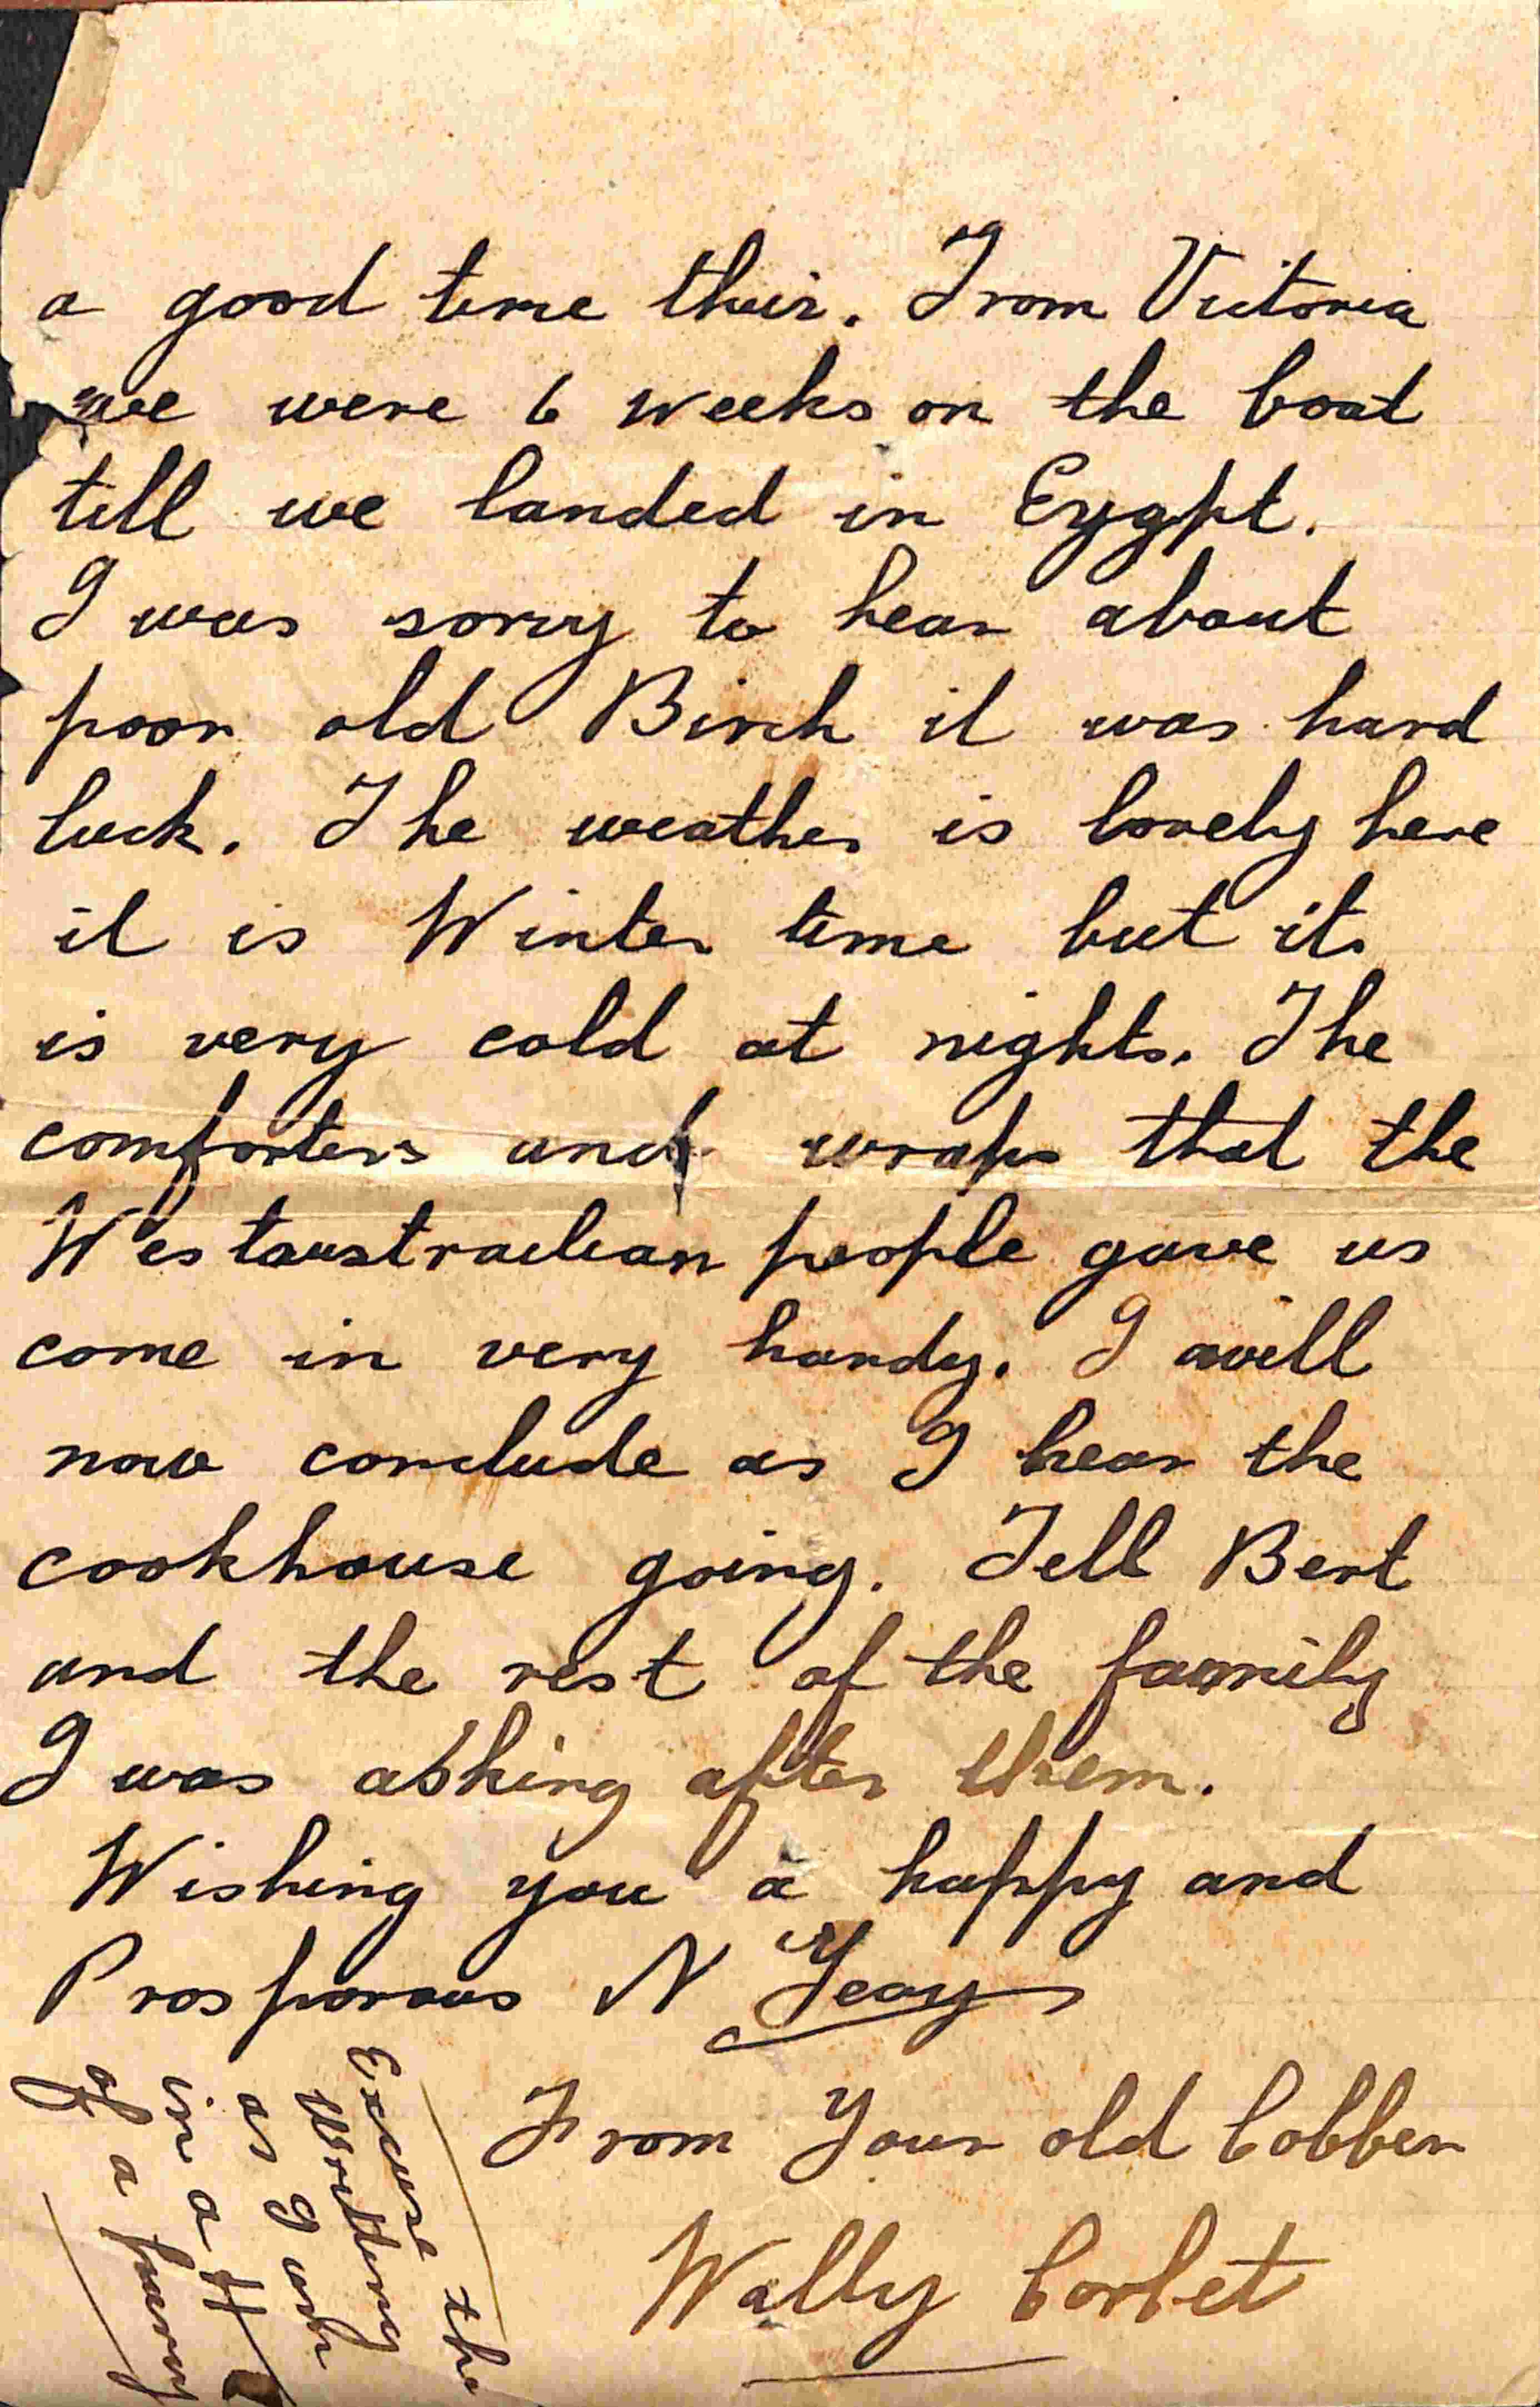 a good time their. From Victoria
we were 6 weeks on the boat
till we landed in Eygpt.
I was sorry to hear about
poor old Birch it was hard
luck. The weather is lovely here
it is Winter time but its
is very cold at nights. The
comforters and wraps that the
Westaustralian people gave us
come in very handy. I will
now conclude as I hear the
cookhouse going. Tell Bert
and the rest of the family
I was asking after them.
Wishing you a happy and
Prosporous N Year
From Your old Cobber
Wally Corbet
Excuse the
Writing
as I was
in a H
of a furry